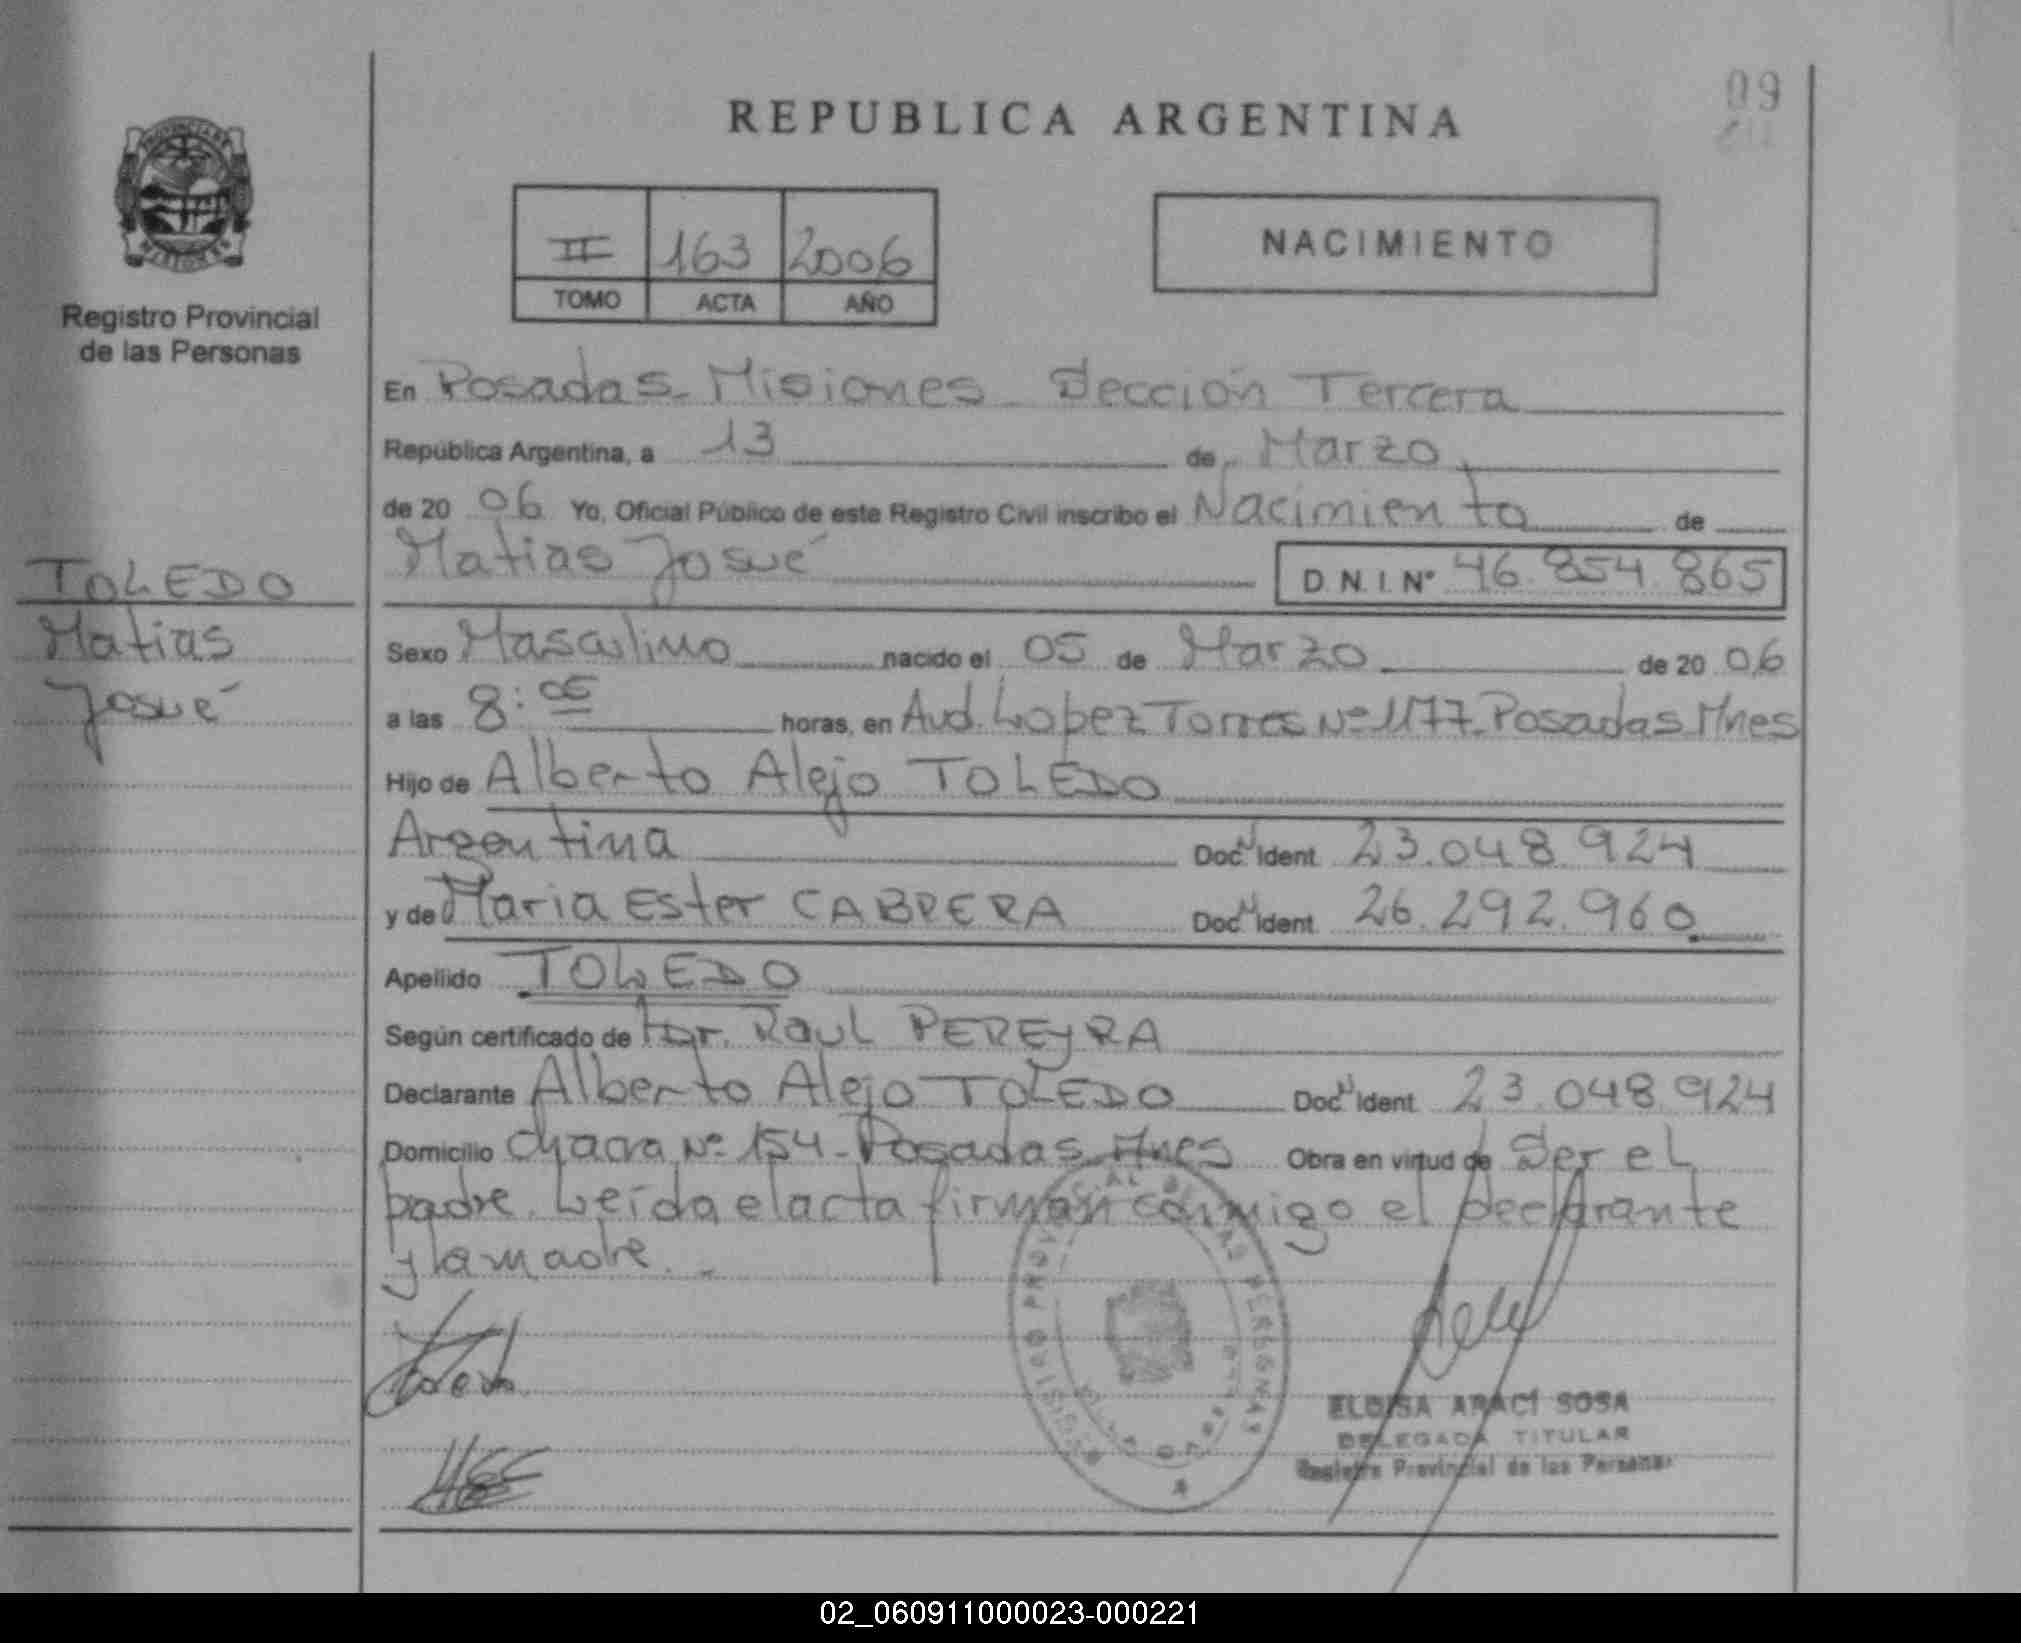 09
REPUBLICA ARGENTINA
PROVINCIA DE
MISIONES
Registro Provincial
de las Personas
II 163 2006
TOMO ACTA AÑO
NACIMIENTO
En Posadas - Misiones - Sección Tercera
República Argentina, a 13 de Marzo
de 20 06 Yo, Oficial Público de este Registro Civil inscribo el Nacimiento de
Matias Josué D.N.I. Nº 46.854.865
TOLEDO
Matias
Josué
Sexo Masculino nacido el 05 de Marzo de 20 06
a las 8:05 horas, en Avd. Lopez Torres Nº 1177 - Posadas Mnes
Hijo de Alberto Alejo TOLEDO
Argentina Doc. Ident. 23.048.924
y de Maria Ester CABRERA Doc. Ident. 26.292.960
Apellido TOLEDO
Según certificado de Dr. Raul PEREYRA
Declarante Alberto Alejo TOLEDO Doc. Ident. 23.048.924
Domicilio Chacra Nº 154 - Posadas Mnes Obra en virtud de Ser el
padre. Leída el acta firman conmigo el declarante
y la madre. -
REGISTRO PROVINCIAL DE LAS PERSONAS
ELOISA ARACÍ SOSA
DELEGADA TITULAR
Registro Provincial de las Personas
02_060911000023-000221